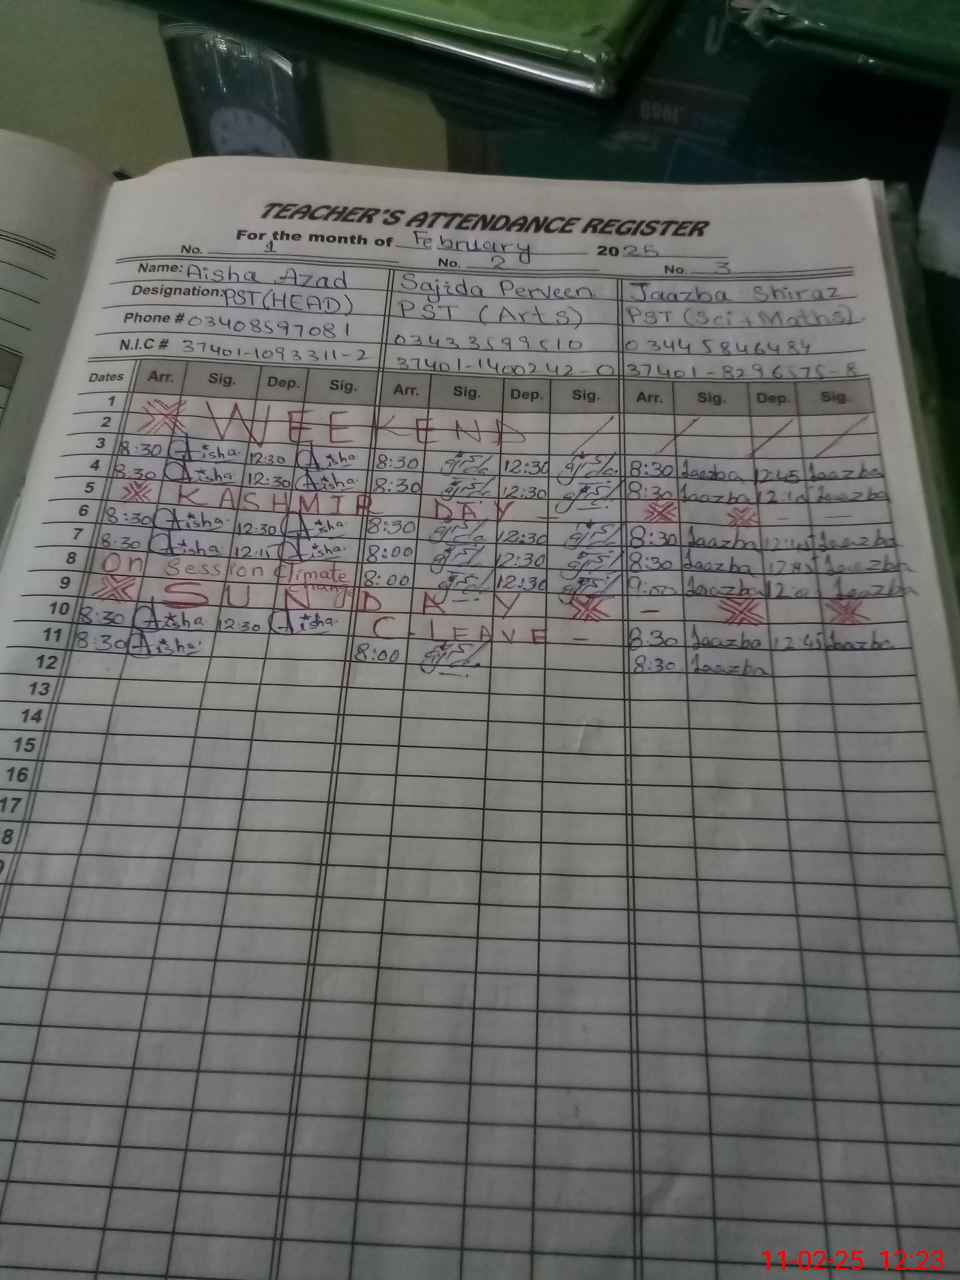 TEACHER'S ATTENDANCE REGISTER
For the month of February 2025
No. 1 No. 2 No. 3
Name: Aisha Azad Sajida Perveen Jaazba Shiraz
Designation: PST (HEAD) PST (Arts) PST (Sci + Maths)
Phone # 03408597081 03433599510 03445846484
N.I.C # 37401-1093311-2 37401-1400242-0 37401-8296575-8
Dates Arr. Sig. Dep. Sig. Arr. Sig. Dep. Sig. Arr. Sig. Dep. Sig.
1
2 WEEKEND
3 8:30 Aisha 12:30 Aisha 8:30 12:30 8:30 Jaazba 12:45 Jaazba
4 8:30 Aisha 12:30 Aisha 8:30 12:30 8:30 Jaazba Jaazba
5 KASHMIR DAY -
6 8:30 Aisha 12:30 Aisha 8:30 12:30 8:30 Jaazba 12:45 Jaazba
7 8:30 Aisha Aisha 8:00 12:30 8:30 Jaazba Jaazba
8 On Session Climate Change 8:00 12:30 9:00 Jaazba Jaazba
9 SUNDAY -
10 8:30 Aisha 12:30 Aisha C. LEAVE - 8:30 Jaazba 12:45 Jaazba
11 8:30 Aisha 8:00 8:30 Jaazba
12
13
14
15
16
17
8
11-02-25 12:23